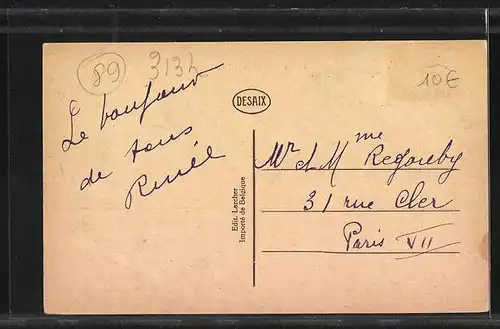 89
3132
10€
Le bonjour
de tous
Renée
DESAIX
Edit. Larcher
Importé de Belgique
Mr et Mme Regouby
31 rue Cler
Paris VII